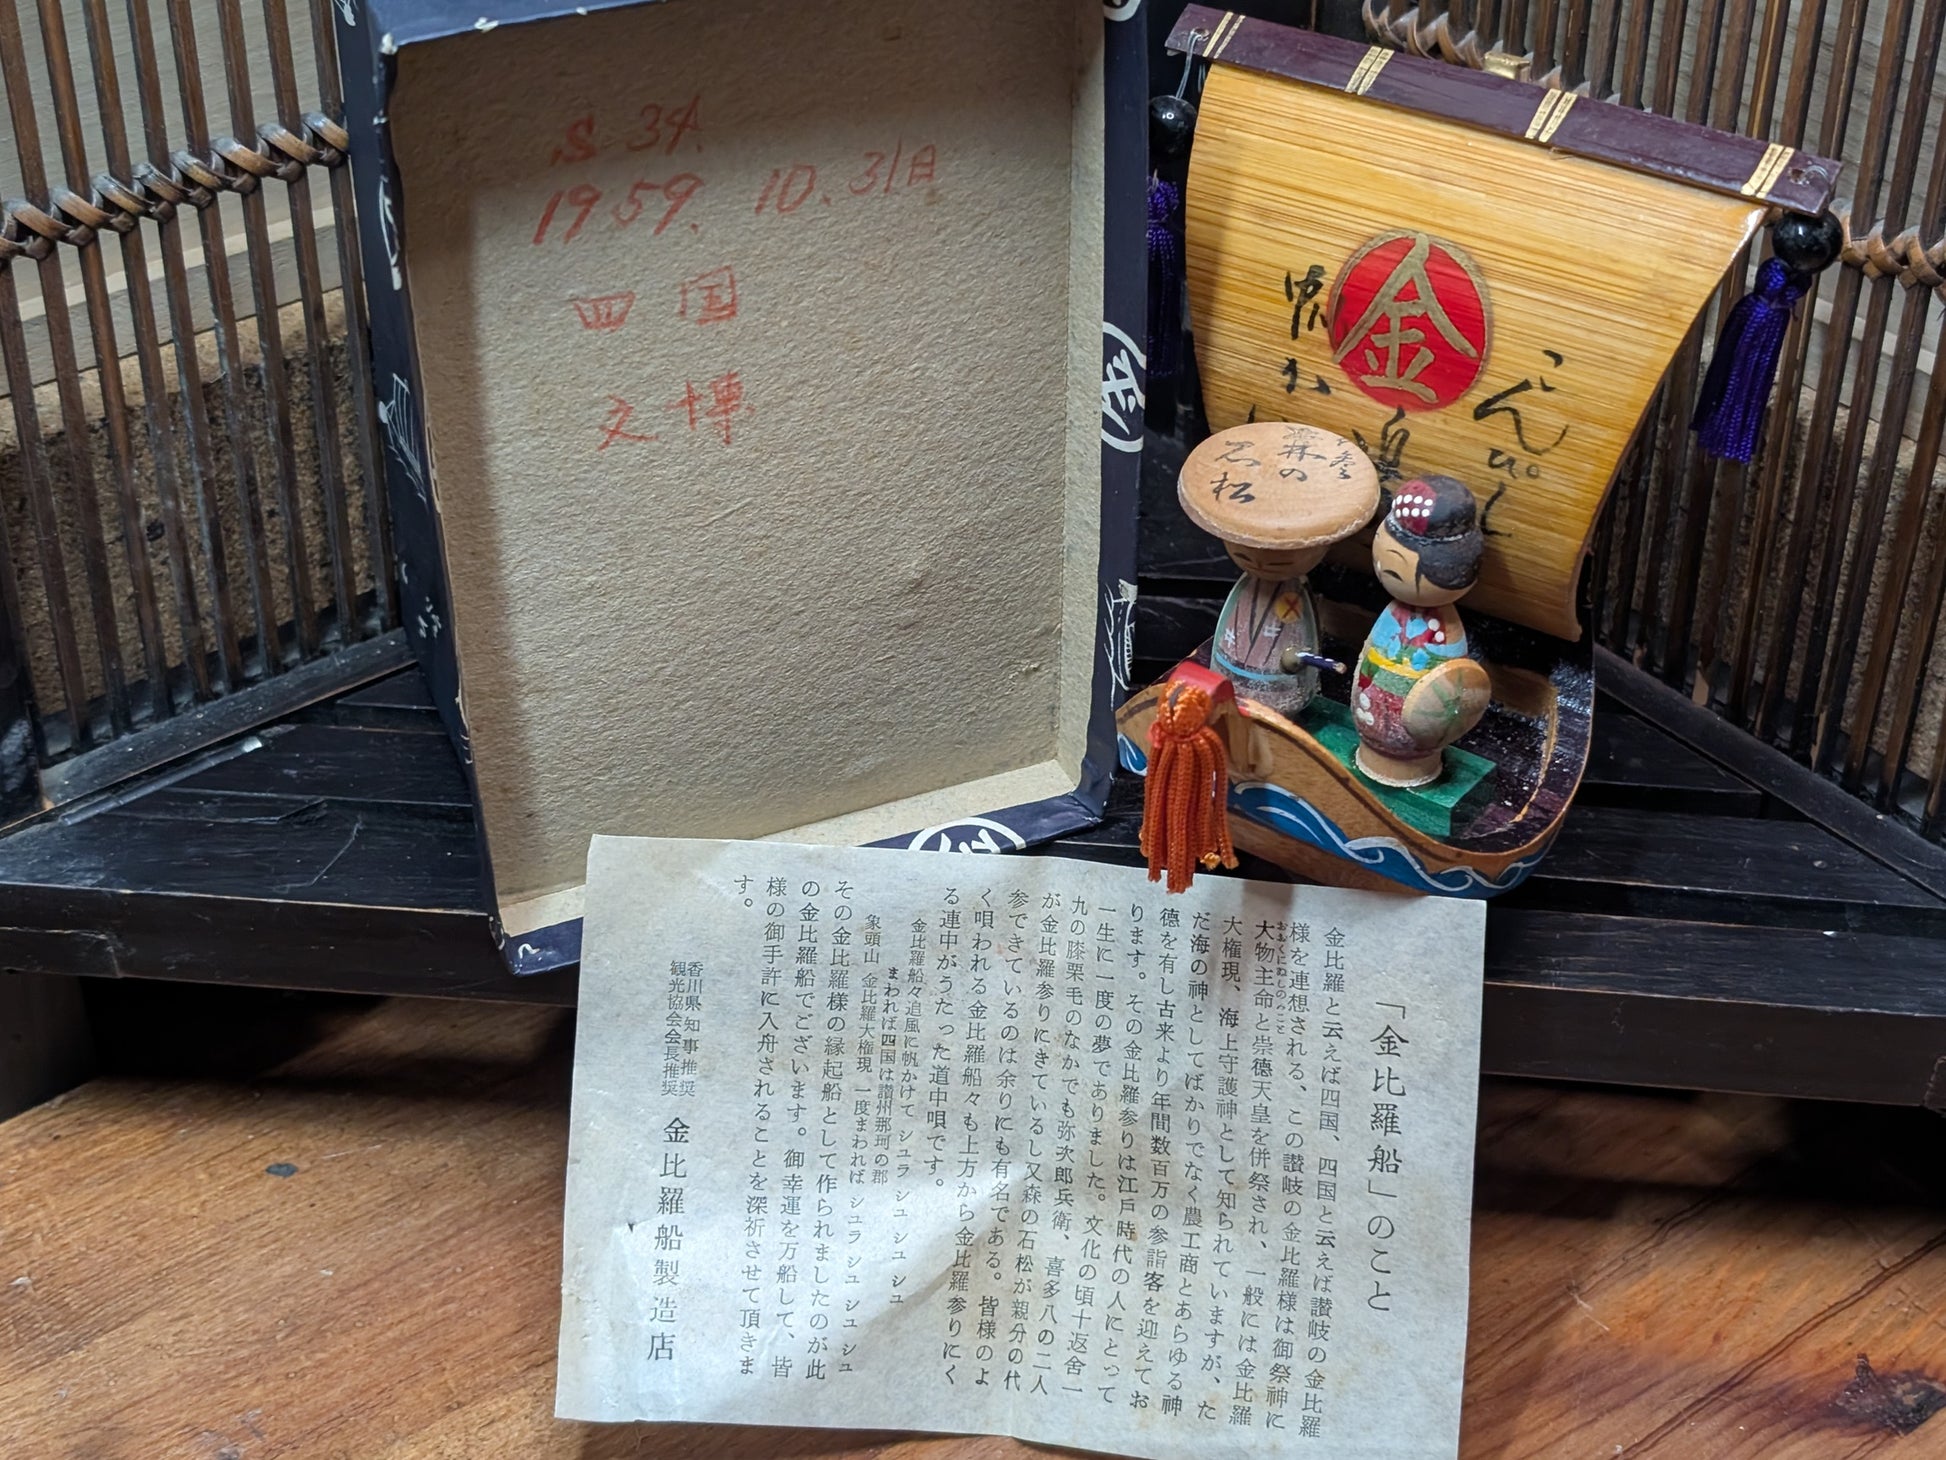 S.34.
1959. 10. 31日
四国
文博
金
こんぴら
帆かけ
森の
石松
「金比羅船」のこと
金比羅と云えば四国、四国と云えば讃岐の金比羅
様を連想される、この讃岐の金比羅様は御祭神に
大物主命と崇徳天皇を併祭され、一般には金比羅
おおくにぬしのみこと
大権現、海上守護神として知られていますが、た
だ海の神としてばかりでなく農工商とあらゆる神
徳を有し古来より年間数百万の参詣客を迎えてお
ります。その金比羅参りは江戸時代の人にとって
一生に一度の夢でありました。文化の頃十返舎一
九の膝栗毛のなかでも弥次郎兵衛、喜多八の二人
が金比羅参りにきているし又森の石松が親分の代
参できているのは余りにも有名である。皆様のよ
く唄われる金比羅船々も上方から金比羅参りにく
る連中がうたった道中唄です。
金比羅船々追風に帆かけて シュラ シュ シュ シュ
まわれば四国は讃州那珂の郡
象頭山 金比羅大権現 一度まわれば シュラ シュ シュ シュ
その金比羅様の縁起船として作られましたのが此
の金比羅船でございます。御幸運を万船して、皆
様の御手許に入舟されることを深祈させて頂きま
す。
香川県知事推奨
観光協会会長推奨
金比羅船製造店